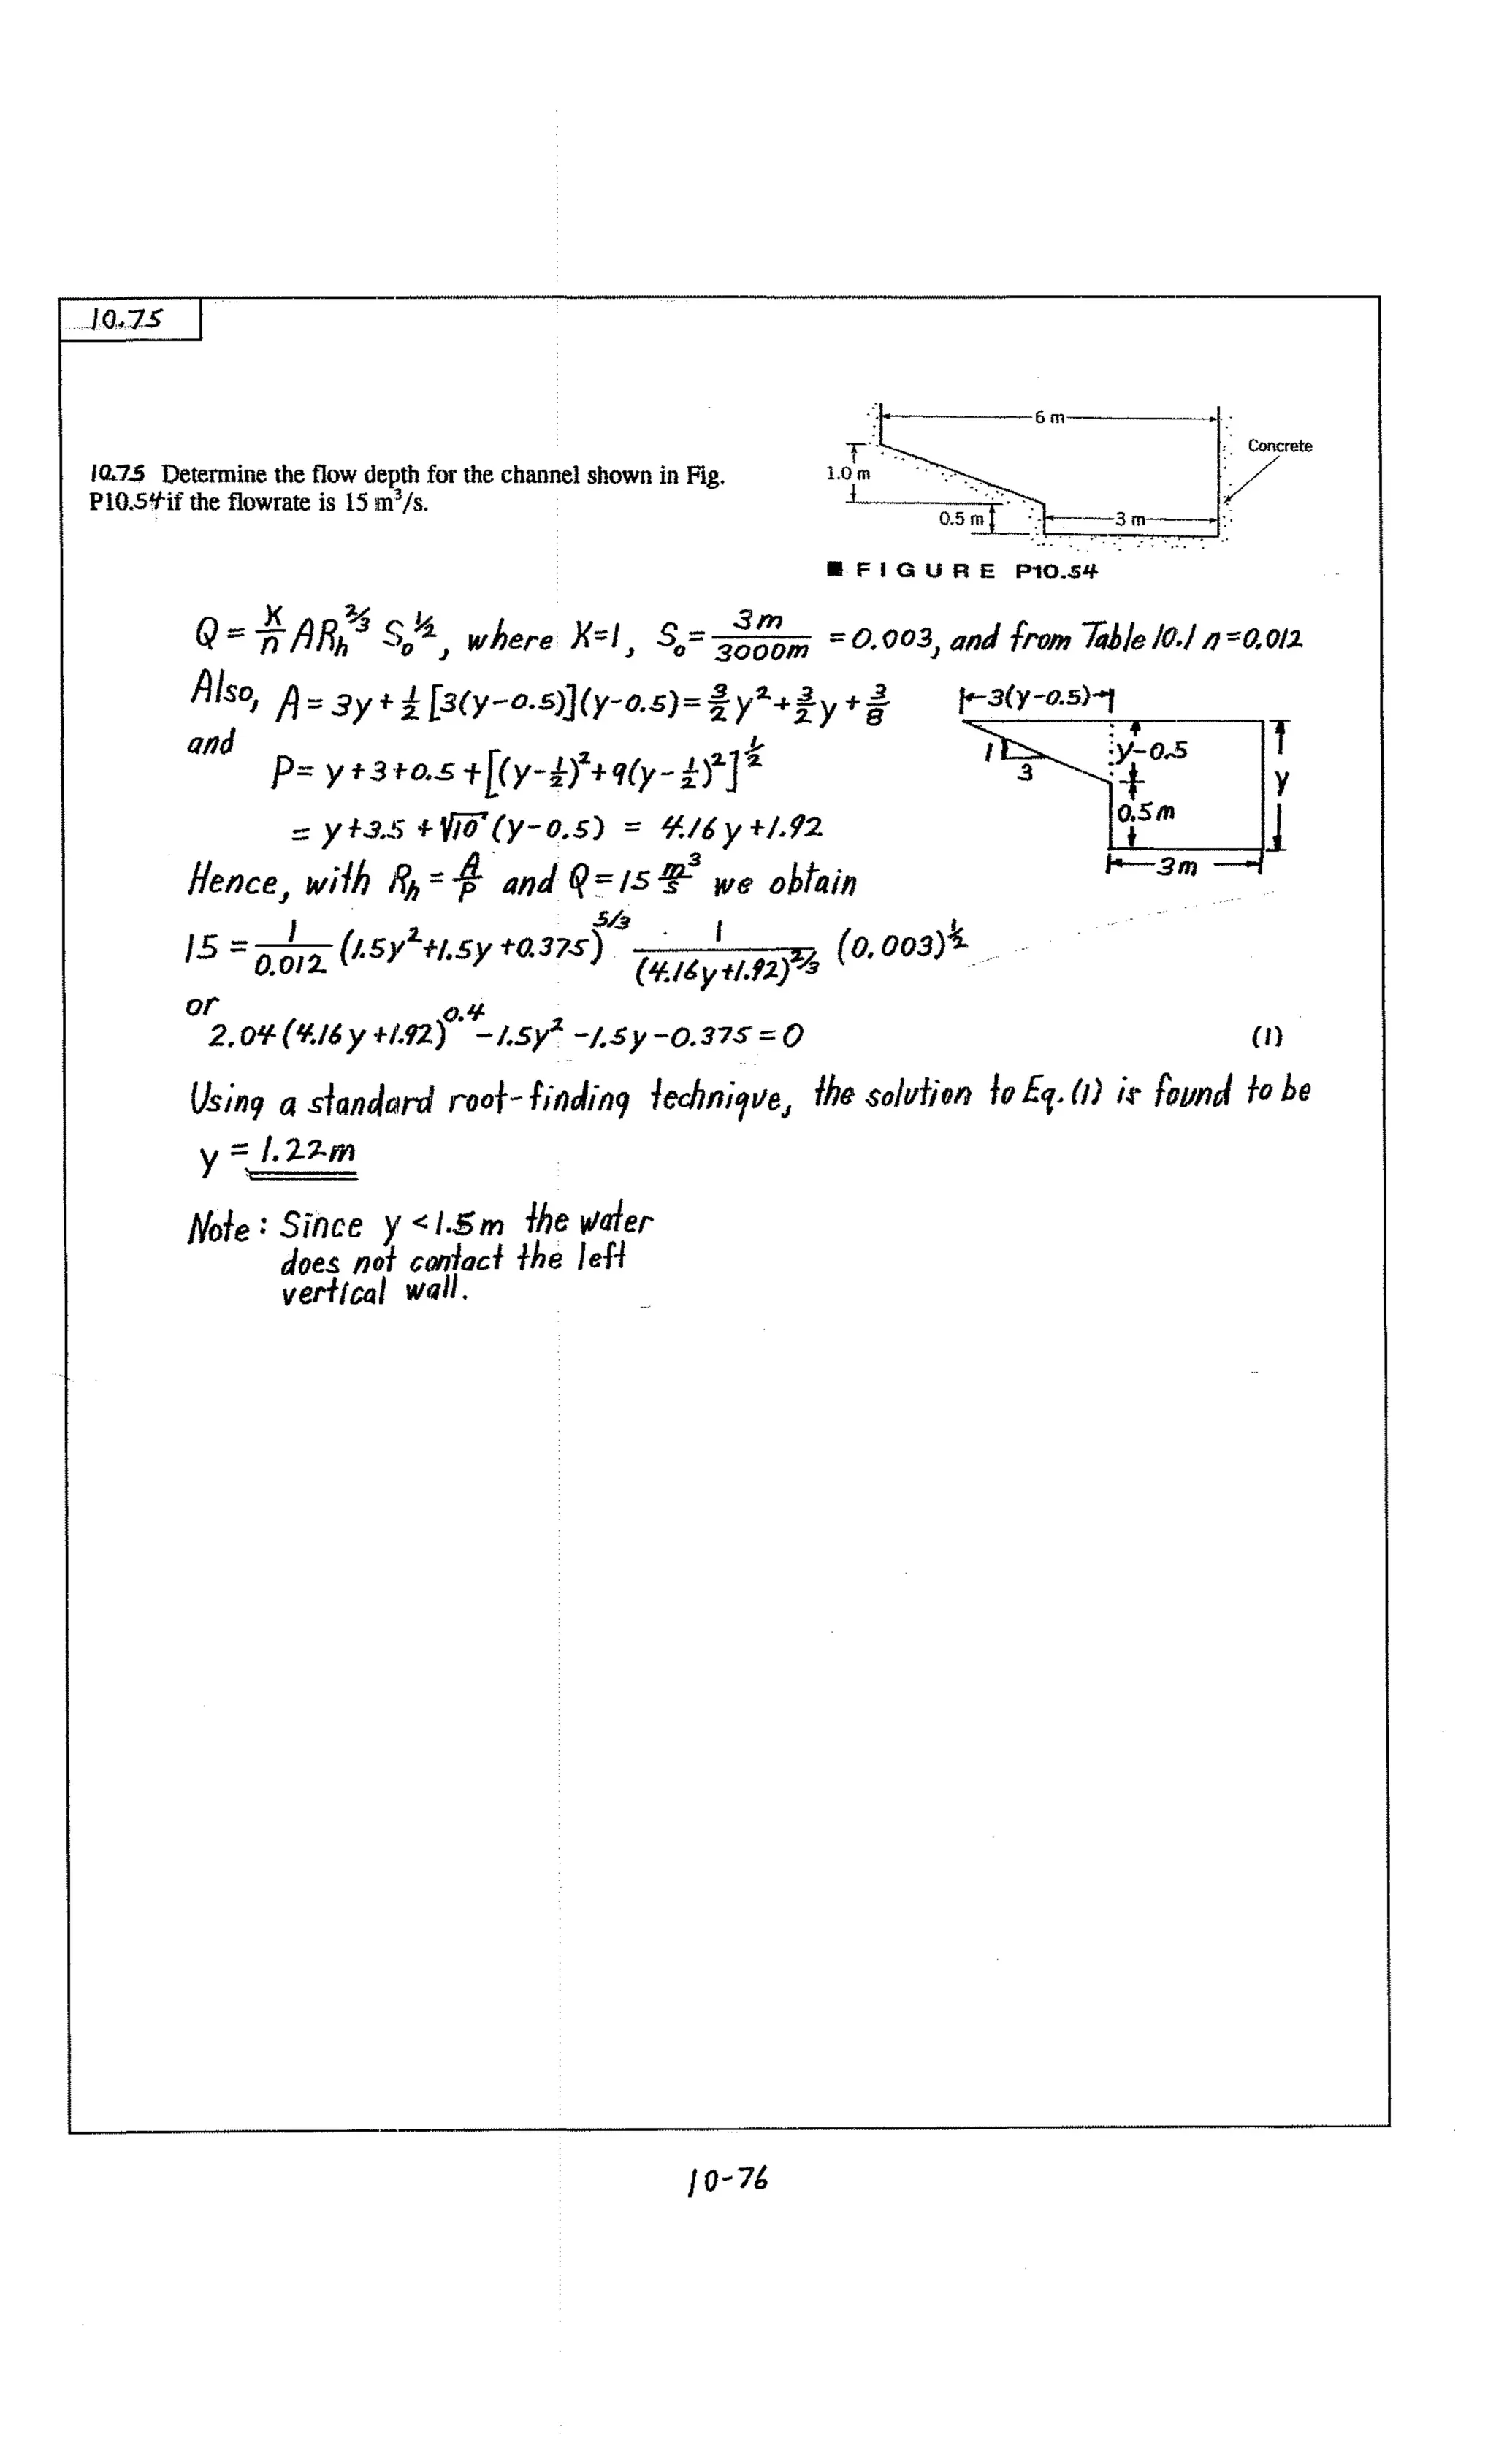 10.75
6 m
Concrete
1.0 m
0.5 m
3 m
10.75 Determine the flow depth for the channel shown in Fig.
P10.54 if the flowrate is 15 m³/s.
■ FIGURE P10.54
Q = K/n A R_h^(2/3) S_0^(1/2), where K=1, S_0 = 3m/3000m = 0.003, and from Table 10.1 n=0.012
Also, A = 3y + 1/2 [3(y-0.5)](y-0.5) = 3/2 y² + 3/2 y + 3/8
and
P = y+3+0.5+[(y-1/2)²+9(y-1/2)²]^(1/2)
= y+3.5+√10 (y-0.5) = 4.16y+1.92
3(y-0.5)
1
3
y-0.5
y
0.5m
3m
Hence, with R_h = A/P and Q = 15 m³/s we obtain
15 = 1/0.012 (1.5y²+1.5y+0.375)^(5/3) 1/(4.16y+1.92)^(2/3) (0.003)^(1/2)
or
2.04(4.16y+1.92)^0.4 -1.5y² -1.5y -0.375 = 0 (1)
Using a standard root-finding technique, the solution to Eq. (1) is found to be
y = 1.22m
Note: Since y < 1.5m the water
does not contact the left
vertical wall.
10-76